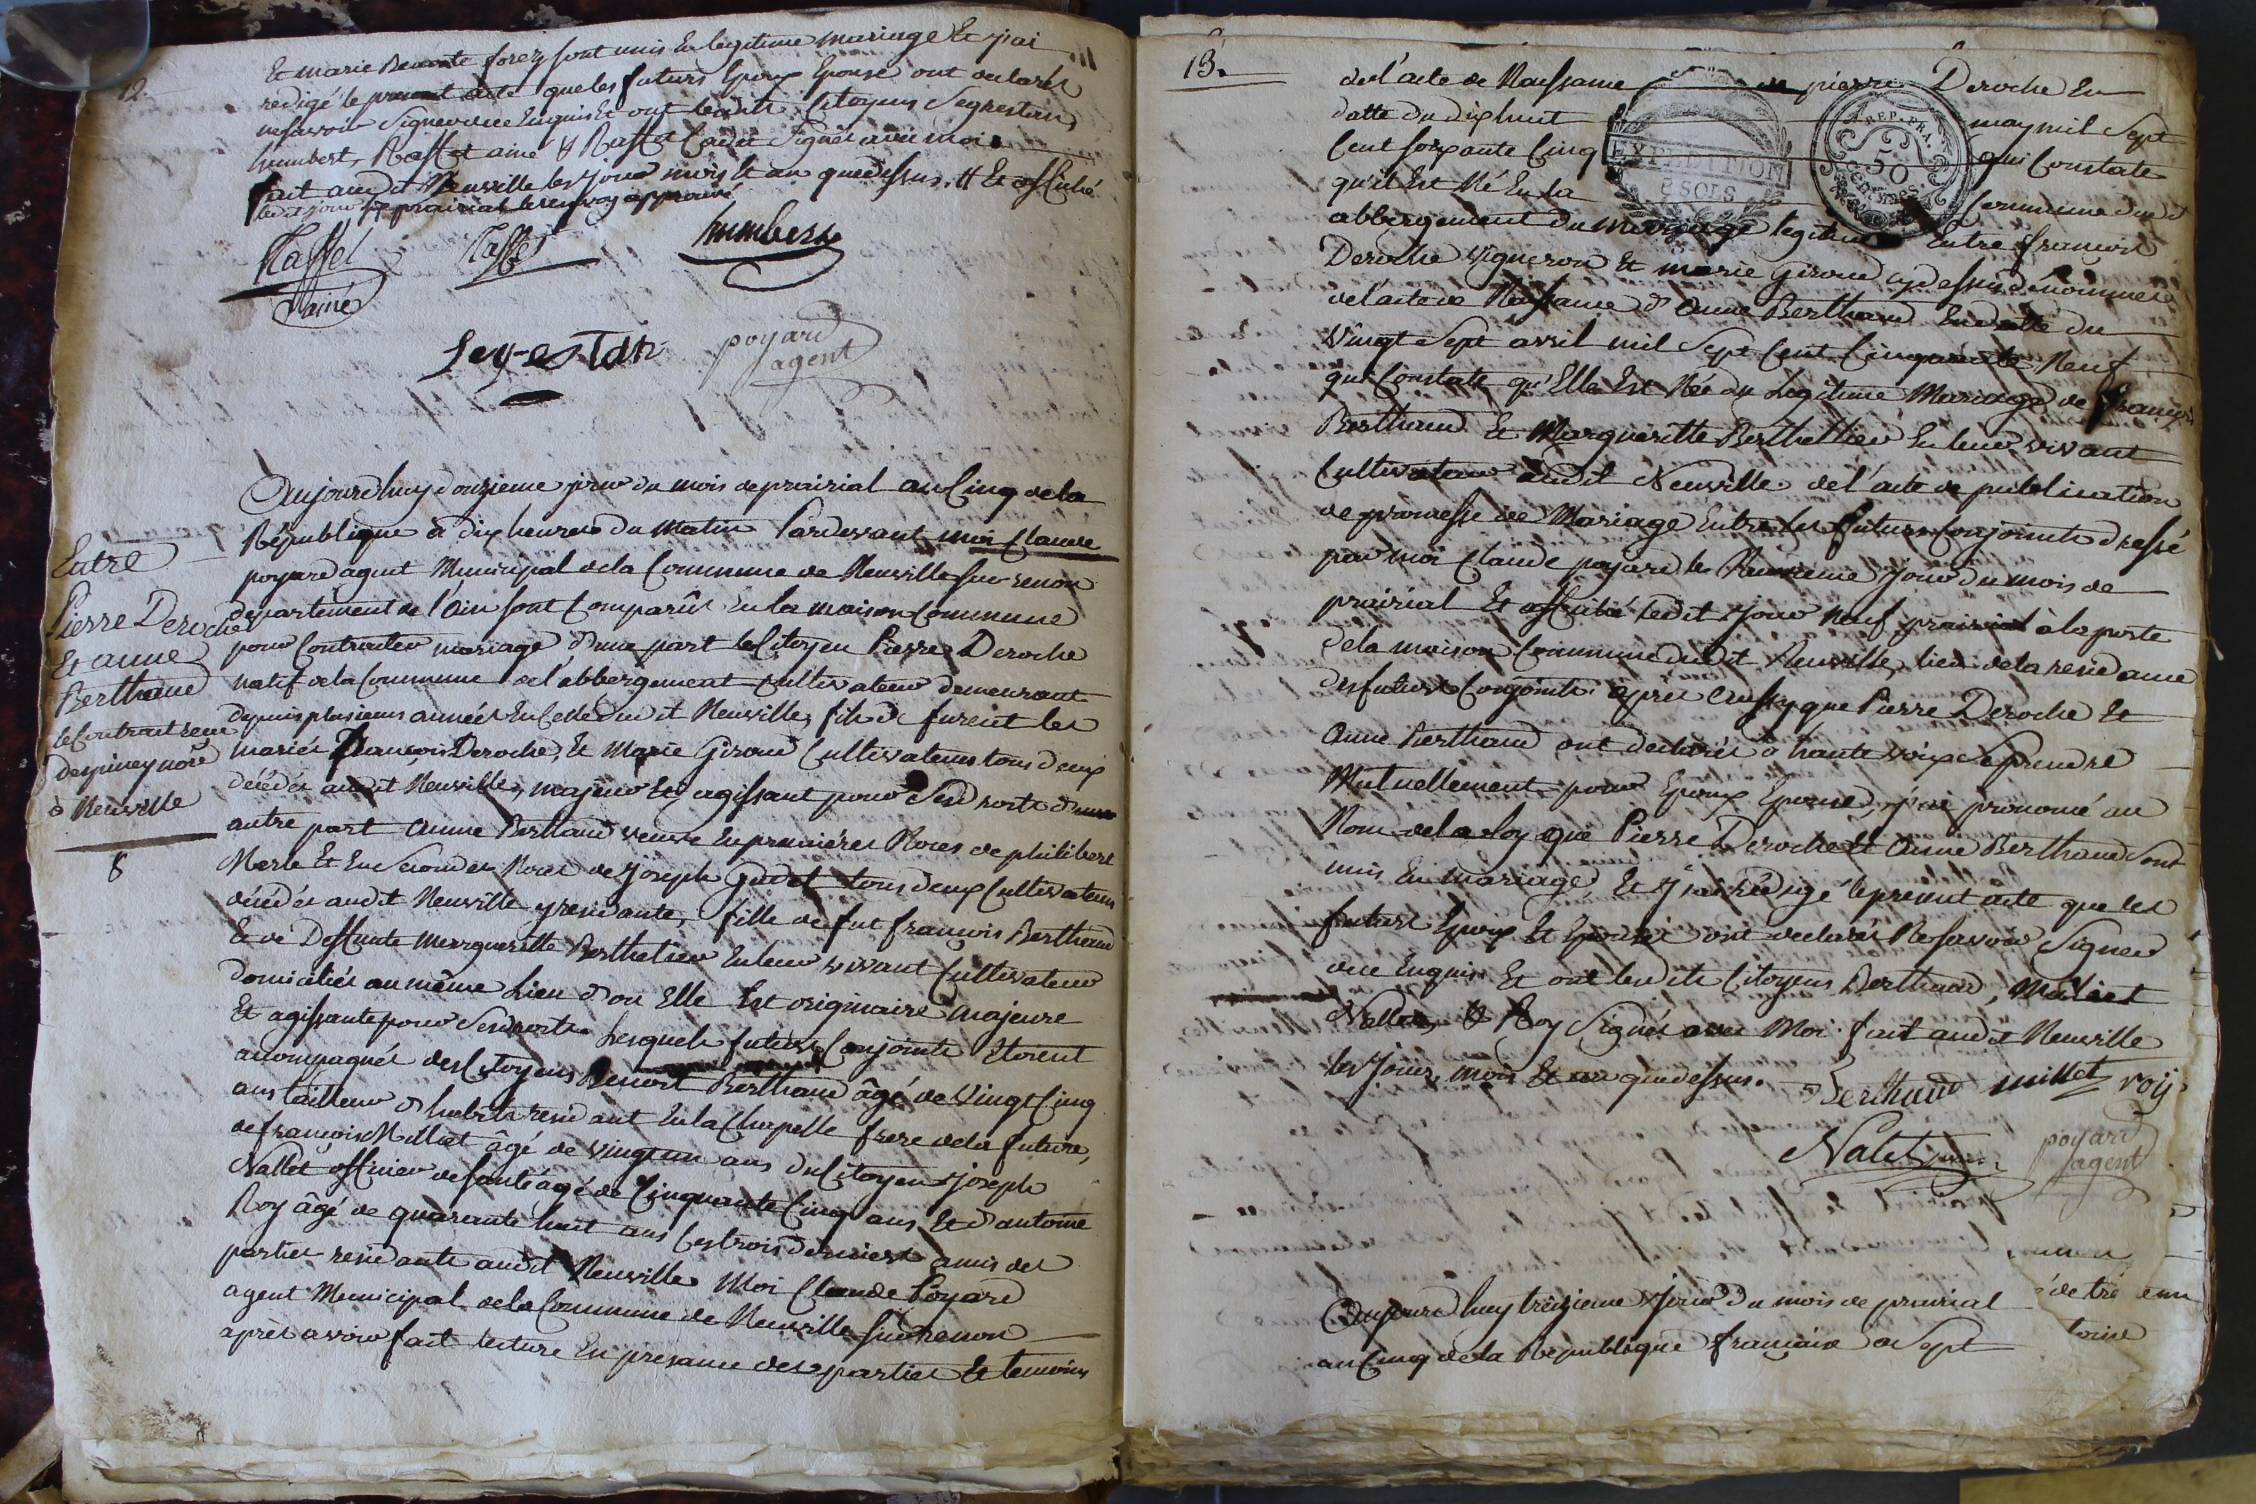 12.
Et marie Benoite forez sont unis En legitime mariage Et j'ai
redigé le present acte que les futurs Epoux Epouse ont declarés
ne savoir Signer de ce Enquis Et ont lesdits Citoyens Segrestan,
humbert, Raffet ainé & Raffet Cadet Signés avec moi
fait audit Neuville les jour mois Et an que dessus. # Et affiché
ledit jour prairial le renvoy approuvé
Raffet
ainé
Raffet
humbert
Segrestan
poyard
agent
Aujourdhuy douzieme jour du mois de prairial an Cinq de la
République à dix heures du matin Pardevant moi Claude
poyard agent Municipal de la Commune de Neuville sur renon
departement de l'ain sont Comparûs En la maison Commune
pour Contracter mariage d'une part le Citoyen Pierre Deroche
natif de la Commune de l'abbergement Cultivateur demeurant
depuis plusieurs années En Celle dudit Neuville, fils de furent les
mariés François Deroche, Et Marie Giroud Cultivateurs tous deux
décédés audit Neuville, majeur Et agissant pour Ses droits d'une
autre part Anne Berthaud veuve En premières Noces de philibert
Merle Et En Secondes Noces de Joseph Gudet tous deux Cultivateurs
décédés audit Neuville y residante, fille de fut françois Berthaud
Et de Deffunte Margueritte Berthelier En leur vivant Cultivateur
domiciliés au même Lieu d'ou Elle Est originaire majeure
Et agissante pour Ses droits. Lesquels futurs Conjoints Etoient
accompagnés des Citoyens Benoit Berthaud âgé de Vingt Cinq
ans tailleur d'habits residant En la Chapelle frere de la future,
de françois Milliet âgé de vingt un ans du Citoyen Joseph
Nallet officier de santé âgé de Cinquante Cinq ans Et d'antoine
Roy âgé de quarante huit ans Ces trois derniers amis des
parties residants audit Neuville Moi Claude Poyard
agent Municipal de la Commune de Neuville sur renon
après avoir fait lecture En presance des parties Et temoins
Entre
Pierre Deroche
Et anne
Berthaud
le Contrat reçu
Despiney nore
à Neuville
8
13.
de l'acte de Naissance de pierre Deroche En
datte du dix huit may mil Sept
Cent soixante Cinq qui Constate
qu'il Est Né En la Commune dudit
abbergement du Mariage legitime Entre françois
Deroche vigneron Et marie Giroud cy dessus dénommés
de l'acte de Naissance d'Anne Berthaud En datte du
vingt Sept avril mil Sept Cent Cinquante Neuf
qui Constate qu'Elle Est Née du Legitime Mariage de François
Berthaud Et Margueritte Berthellier En leur vivant
Cultivateur audit Neuville de l'acte de publication
de promesse de Mariage Entre les futurs Conjoints dressé
par moi Claude poyard le Neuvieme jour du mois de
prairial Et affiché ledit jour neuf prairial à la porte
de la maison Commune dudit Neuville, lieu de la residance
des futurs Conjoints. après aussy que Pierre Deroche Et
Anne Berthaud ont declarés à haute voix Se prendre
Mutuellement pour Epoux Epouse, j'ai prononcé au
Nom de la Loy que Pierre Deroche Et Anne Berthaud Sont
unis En mariage, Et j'ai rédigé le present acte que les
futurs Epoux Et Epouse ont declarés Ne savoir Signer
de ce Enquis. Et ont lesdits Citoyens Berthaud, Milliet
Nallet, & Roy Signés avec Moi. fait audit Neuville
les jour, mois Et an que dessus.
EXPEDITION
8 SOLS
REP. FRA.
50
CENTIMES
Berthaud millet roÿ
Nalet
poyard
agent
Aujourdhuy treizieme jour du mois de prairial
an Cinq de la République française à Sept